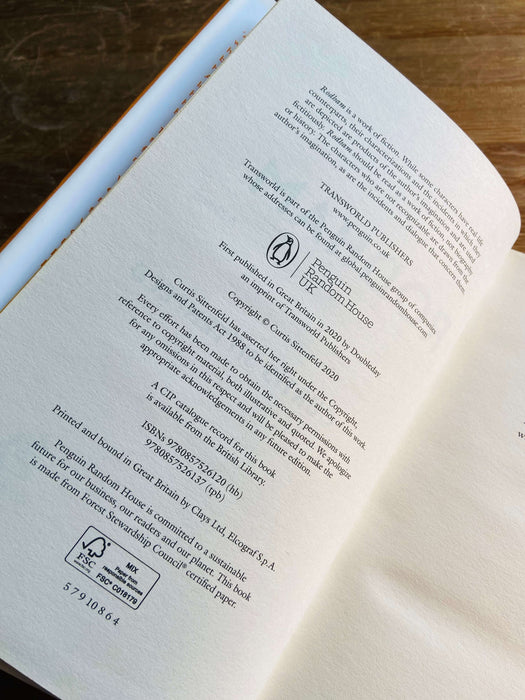 Rodham is a work of fiction. While some characters have real-life
counterparts, their characterizations and the incidents in which they
are depicted are products of the author's imagination and are used
fictitiously. Rodham should be read as a work of fiction, not biography
or history. The characters who are not recognizable are drawn from the
author's imagination as are the incidents and dialogue that concern them.
TRANSWORLD PUBLISHERS
www.penguin.co.uk
Transworld is part of the Penguin Random House group of companies
whose addresses can be found at global.penguinrandomhouse.com
Penguin
Random House
UK
First published in Great Britain in 2020 by Doubleday
an imprint of Transworld Publishers
Copyright © Curtis Sittenfeld 2020
Curtis Sittenfeld has asserted her right under the Copyright,
Designs and Patents Act 1988 to be identified as the author of this work.
Every effort has been made to obtain the necessary permissions with
reference to copyright material, both illustrative and quoted. We apologize
for any omissions in this respect and will be pleased to make the
appropriate acknowledgements in any future edition.
A CIP catalogue record for this book
is available from the British Library.
ISBNs 9780857526120 (hb)
9780857526137 (tpb)
Printed and bound in Great Britain by Clays Ltd, Elcograf S.p.A.
Penguin Random House is committed to a sustainable
future for our business, our readers and our planet. This book
is made from Forest Stewardship Council® certified paper.
FSC
www.fsc.org
MIX
Paper from
responsible sources
FSC® C018179
5 7 9 10 8 6 4
w